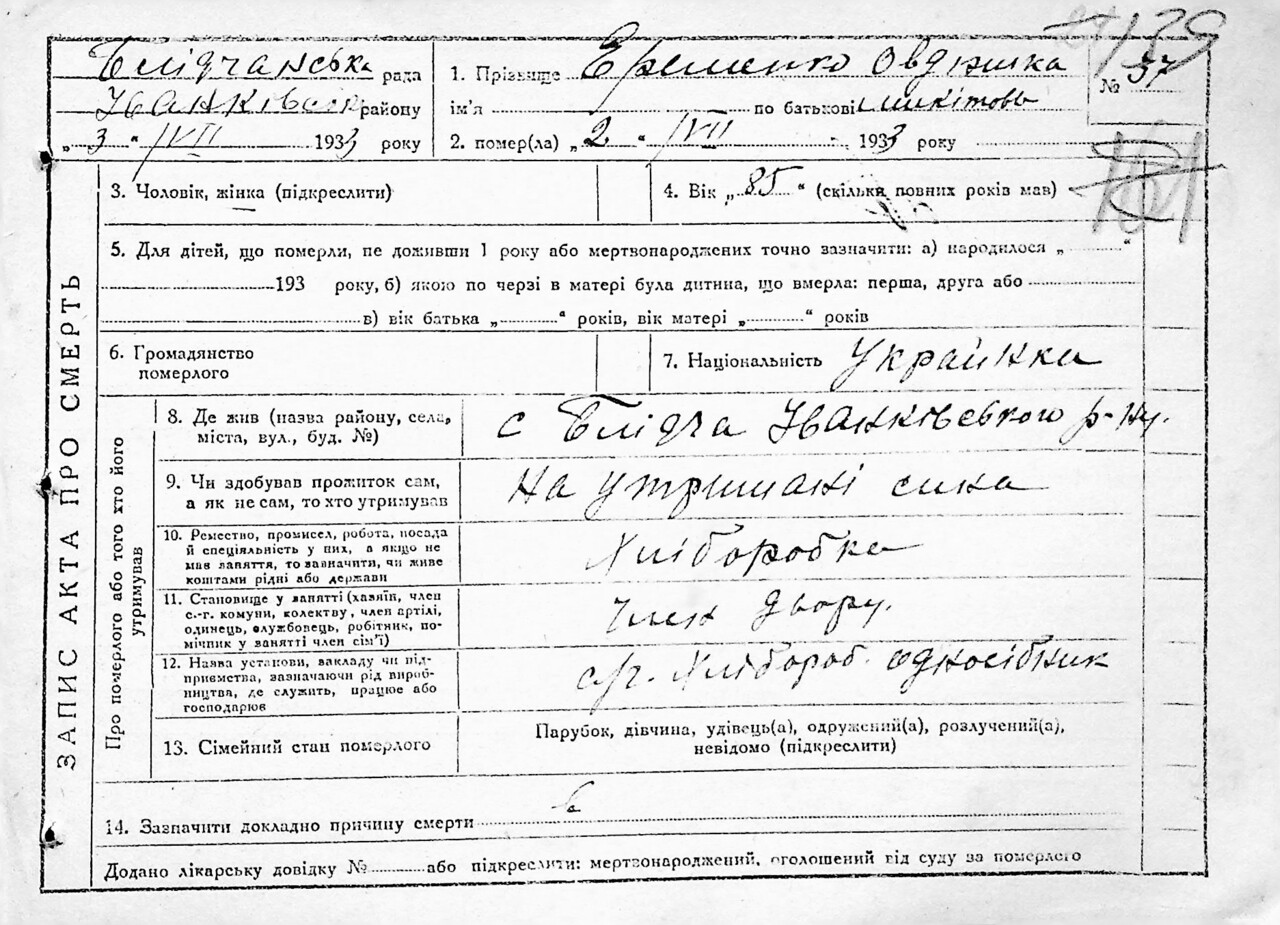 Блідчанська рада
Іванківськ району
„ 3 “ /VII 1933 року
1. Прізвище Еременко Овдюшка
ім'я по батькові Микітовь
2. помер(ла) „ 2 “ /VII 1933 року
№ 37
ЗАПИС АКТА ПРО СМЕРТЬ
3. Чоловік, жінка (підкреслити)
4. Вік „ 85 “ (скільки повних років мав)
5. Для дітей, що померли, не доживши 1 року або мертвонароджених точно зазначити: а) народилося „ “
193 року, б) якою по черзі в матері була дитина, що вмерла: перша, друга або
в) вік батька „ “ років, вік матері „ “ років
6. Громадянство
померлого
7. Національність Українка
Про померлого або того хто його
утримував
8. Де жив (назва району, села,
міста, вул., буд. №)
с Блідча Іванківського р-ну.
9. Чи здобував прожиток сам,
а як не сам, то хто утримував
На утримані сина
10. Ремество, промисел, робота, посада
й спеціяльність у них, а якщо не
мав заняття, то зазначити, чи живе
коштами рідні або держави
Хліборобка
11. Становище у занятті (хазяїн, член
с.-г. комуни, колективу, член артілі,
одинець, службовець, робітник, по-
мічник у занятті член сім'ї)
Член двору.
12. Назва установи, закладу чи під-
приємства, зазначаючи рід вироб-
ництва, де служить, працює або
господарює
с/г. Хлібороб. односібник
13. Сімейний стан померлого
Парубок, дівчина, удівець(а), одружений(а), розлучений(а),
невідомо (підкреслити)
14. Зазначити докладно причину смерти
Додано лікарську довідку № або підкреслити: мертвонароджений, оголошений від суду за померлого